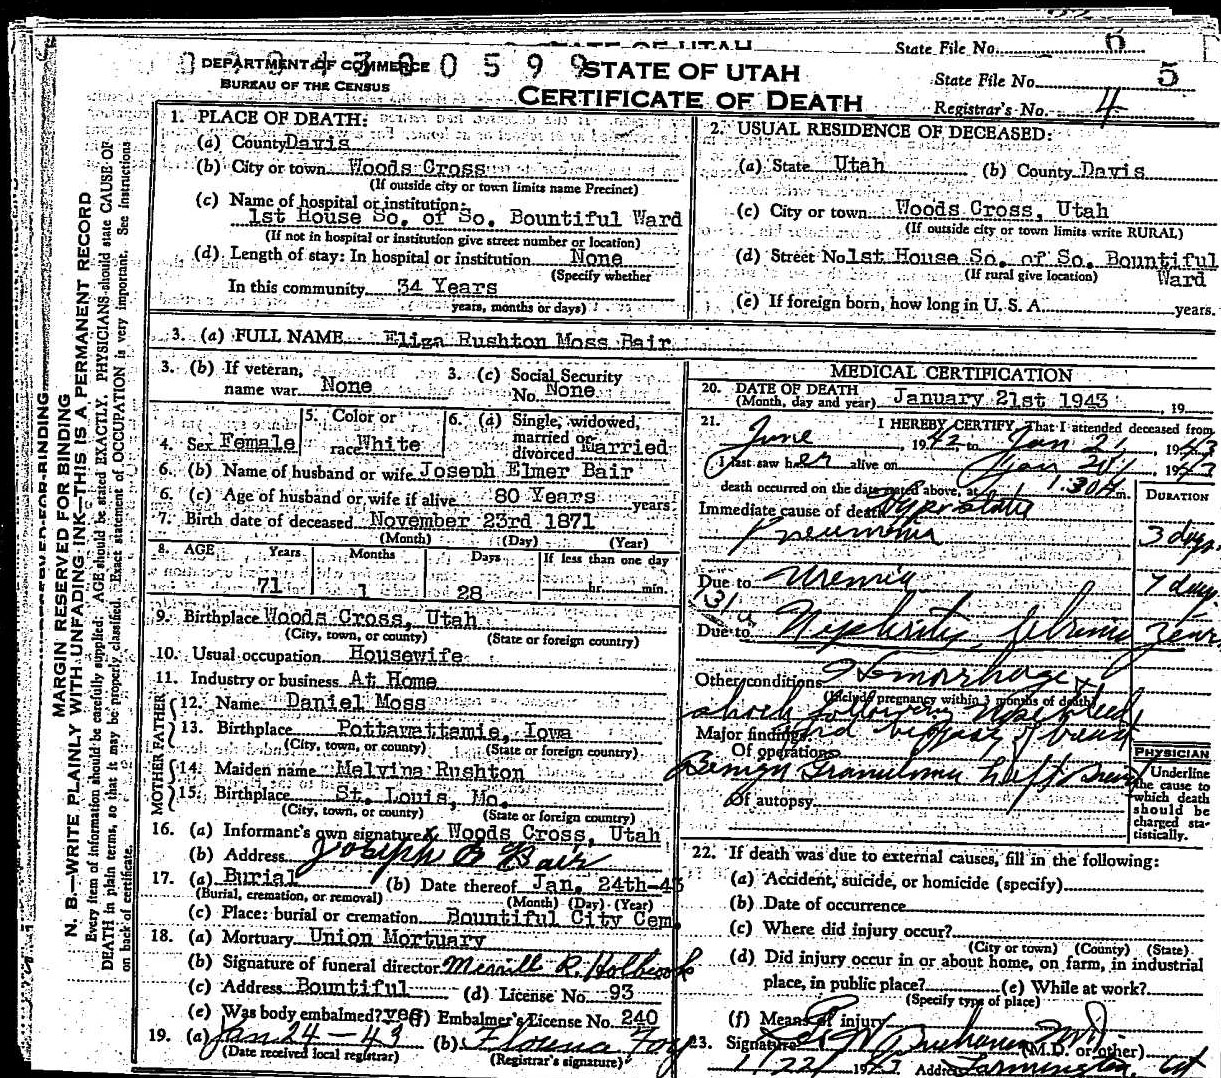 STATE OF UTAH
State File No. 6
DEPARTMENT OF COMMERCE
BUREAU OF THE CENSUS
STATE OF UTAH
CERTIFICATE OF DEATH
State File No. 5
Registrar's No. 4
MARGIN RESERVED FOR BINDING
N. B.—WRITE PLAINLY WITH UNFADING INK—THIS IS A PERMANENT RECORD
Every item of information should be carefully supplied. AGE should be stated EXACTLY. PHYSICIANS should state CAUSE OF
DEATH in plain terms, so that it may be properly classified. Exact statement of OCCUPATION is very important. See instructions
on back of certificate.
1. PLACE OF DEATH:
(a) County Davis
(b) City or town Woods Cross
(If outside city or town limits name Precinct)
(c) Name of hospital or institution:
1st House So. of So. Bountiful Ward
(If not in hospital or institution give street number or location)
(d) Length of stay: In hospital or institution None
(Specify whether
In this community 34 Years
years, months or days)
2. USUAL RESIDENCE OF DECEASED:
(a) State Utah (b) County Davis
(c) City or town Woods Cross, Utah
(If outside city or town limits write RURAL)
(d) Street No. 1st House So. of So. Bountiful
(If rural give location) Ward
(e) If foreign born, how long in U. S. A. years.
3. (a) FULL NAME Eliza Rushton Moss Bair
3. (b) If veteran,
name war None
3. (c) Social Security
No. None
4. Sex Female
5. Color or
race White
6. (a) Single, widowed,
married or
divorced Married
6. (b) Name of husband or wife Joseph Elmer Bair
6. (c) Age of husband or wife if alive 80 Years years
7. Birth date of deceased November 23rd 1871
(Month) (Day) (Year)
8. AGE Years Months Days If less than one day
71 1 28 hr. min.
9. Birthplace Woods Cross, Utah
(City, town, or county) (State or foreign country)
10. Usual occupation Housewife
11. Industry or business At Home
FATHER
12. Name Daniel Moss
13. Birthplace Pottawattamie, Iowa
(City, town, or county) (State or foreign country)
MOTHER
14. Maiden name Melvina Rushton
15. Birthplace St. Louis, Mo.
(City, town, or county) (State or foreign country)
16. (a) Informant's own signature x Woods Cross, Utah
(b) Address Joseph E Bair
17. (a) Burial (b) Date thereof Jan. 24th-43
(Burial, cremation, or removal) (Month) (Day) (Year)
(c) Place: burial or cremation Bountiful City Cem.
18. (a) Mortuary Union Mortuary
(b) Signature of funeral director Merrill R. Holbrook
(c) Address Bountiful (d) License No. 93
(e) Was body embalmed? yes (f) Embalmer's License No. 240
19. (a) Jan 24-43 (b)
(Date received local registrar) (Registrar's signature)
MEDICAL CERTIFICATION
20. DATE OF DEATH
(Month, day and year) January 21st 1943, 19
21. I HEREBY CERTIFY, That I attended deceased from
June 1942, to Jan 21, 1943
I last saw her alive on Jan 20, 1943
death occurred on the date stated above, at 1:30 A m.
DURATION
Immediate cause of death Hypostatic
Pneumonia 3 days
Due to Uremia 7 days
131a
Due to Nephritis, 2 years
Other conditions Hemorrhage &
(Include pregnancy within 3 months of death)
shock following Nose bleed
Major findings: and biopsy of breast
Of operations
Benign Granuloma Left Breast
Of autopsy
PHYSICIAN
Underline
the cause to
which death
should be
charged sta-
tistically.
22. If death was due to external causes, fill in the following:
(a) Accident, suicide, or homicide (specify)
(b) Date of occurrence
(c) Where did injury occur?
(City or town) (County) (State)
(d) Did injury occur in or about home, on farm, in industrial
place, in public place? (e) While at work?
(Specify type of place)
(f) Means of injury
23. Signature Buchanan M.D.
(M.D. or other)
1/22/ 1943 Address Farmington, Ut